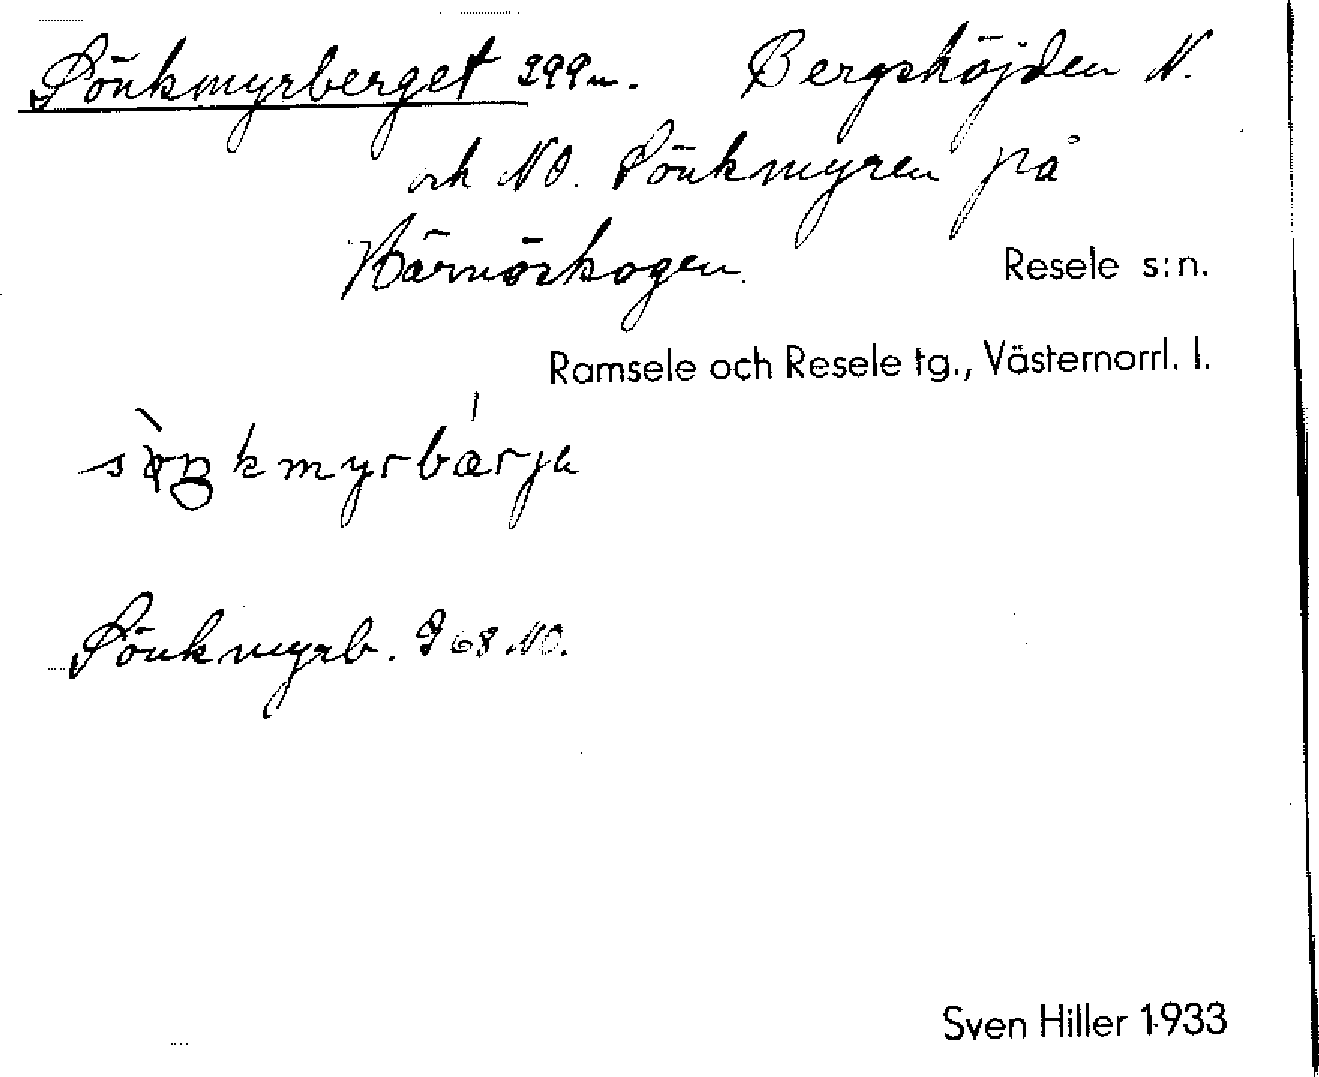 Sönkmyrberget 399 m. Bergshöjden N.
och NO. Sönkmyren på
Härnöskogen. Resele s:n.
Ramsele och Resele tg., Västernorrl. l.
Sönkmyrb. 968 NO.
Sven Hiller 1933